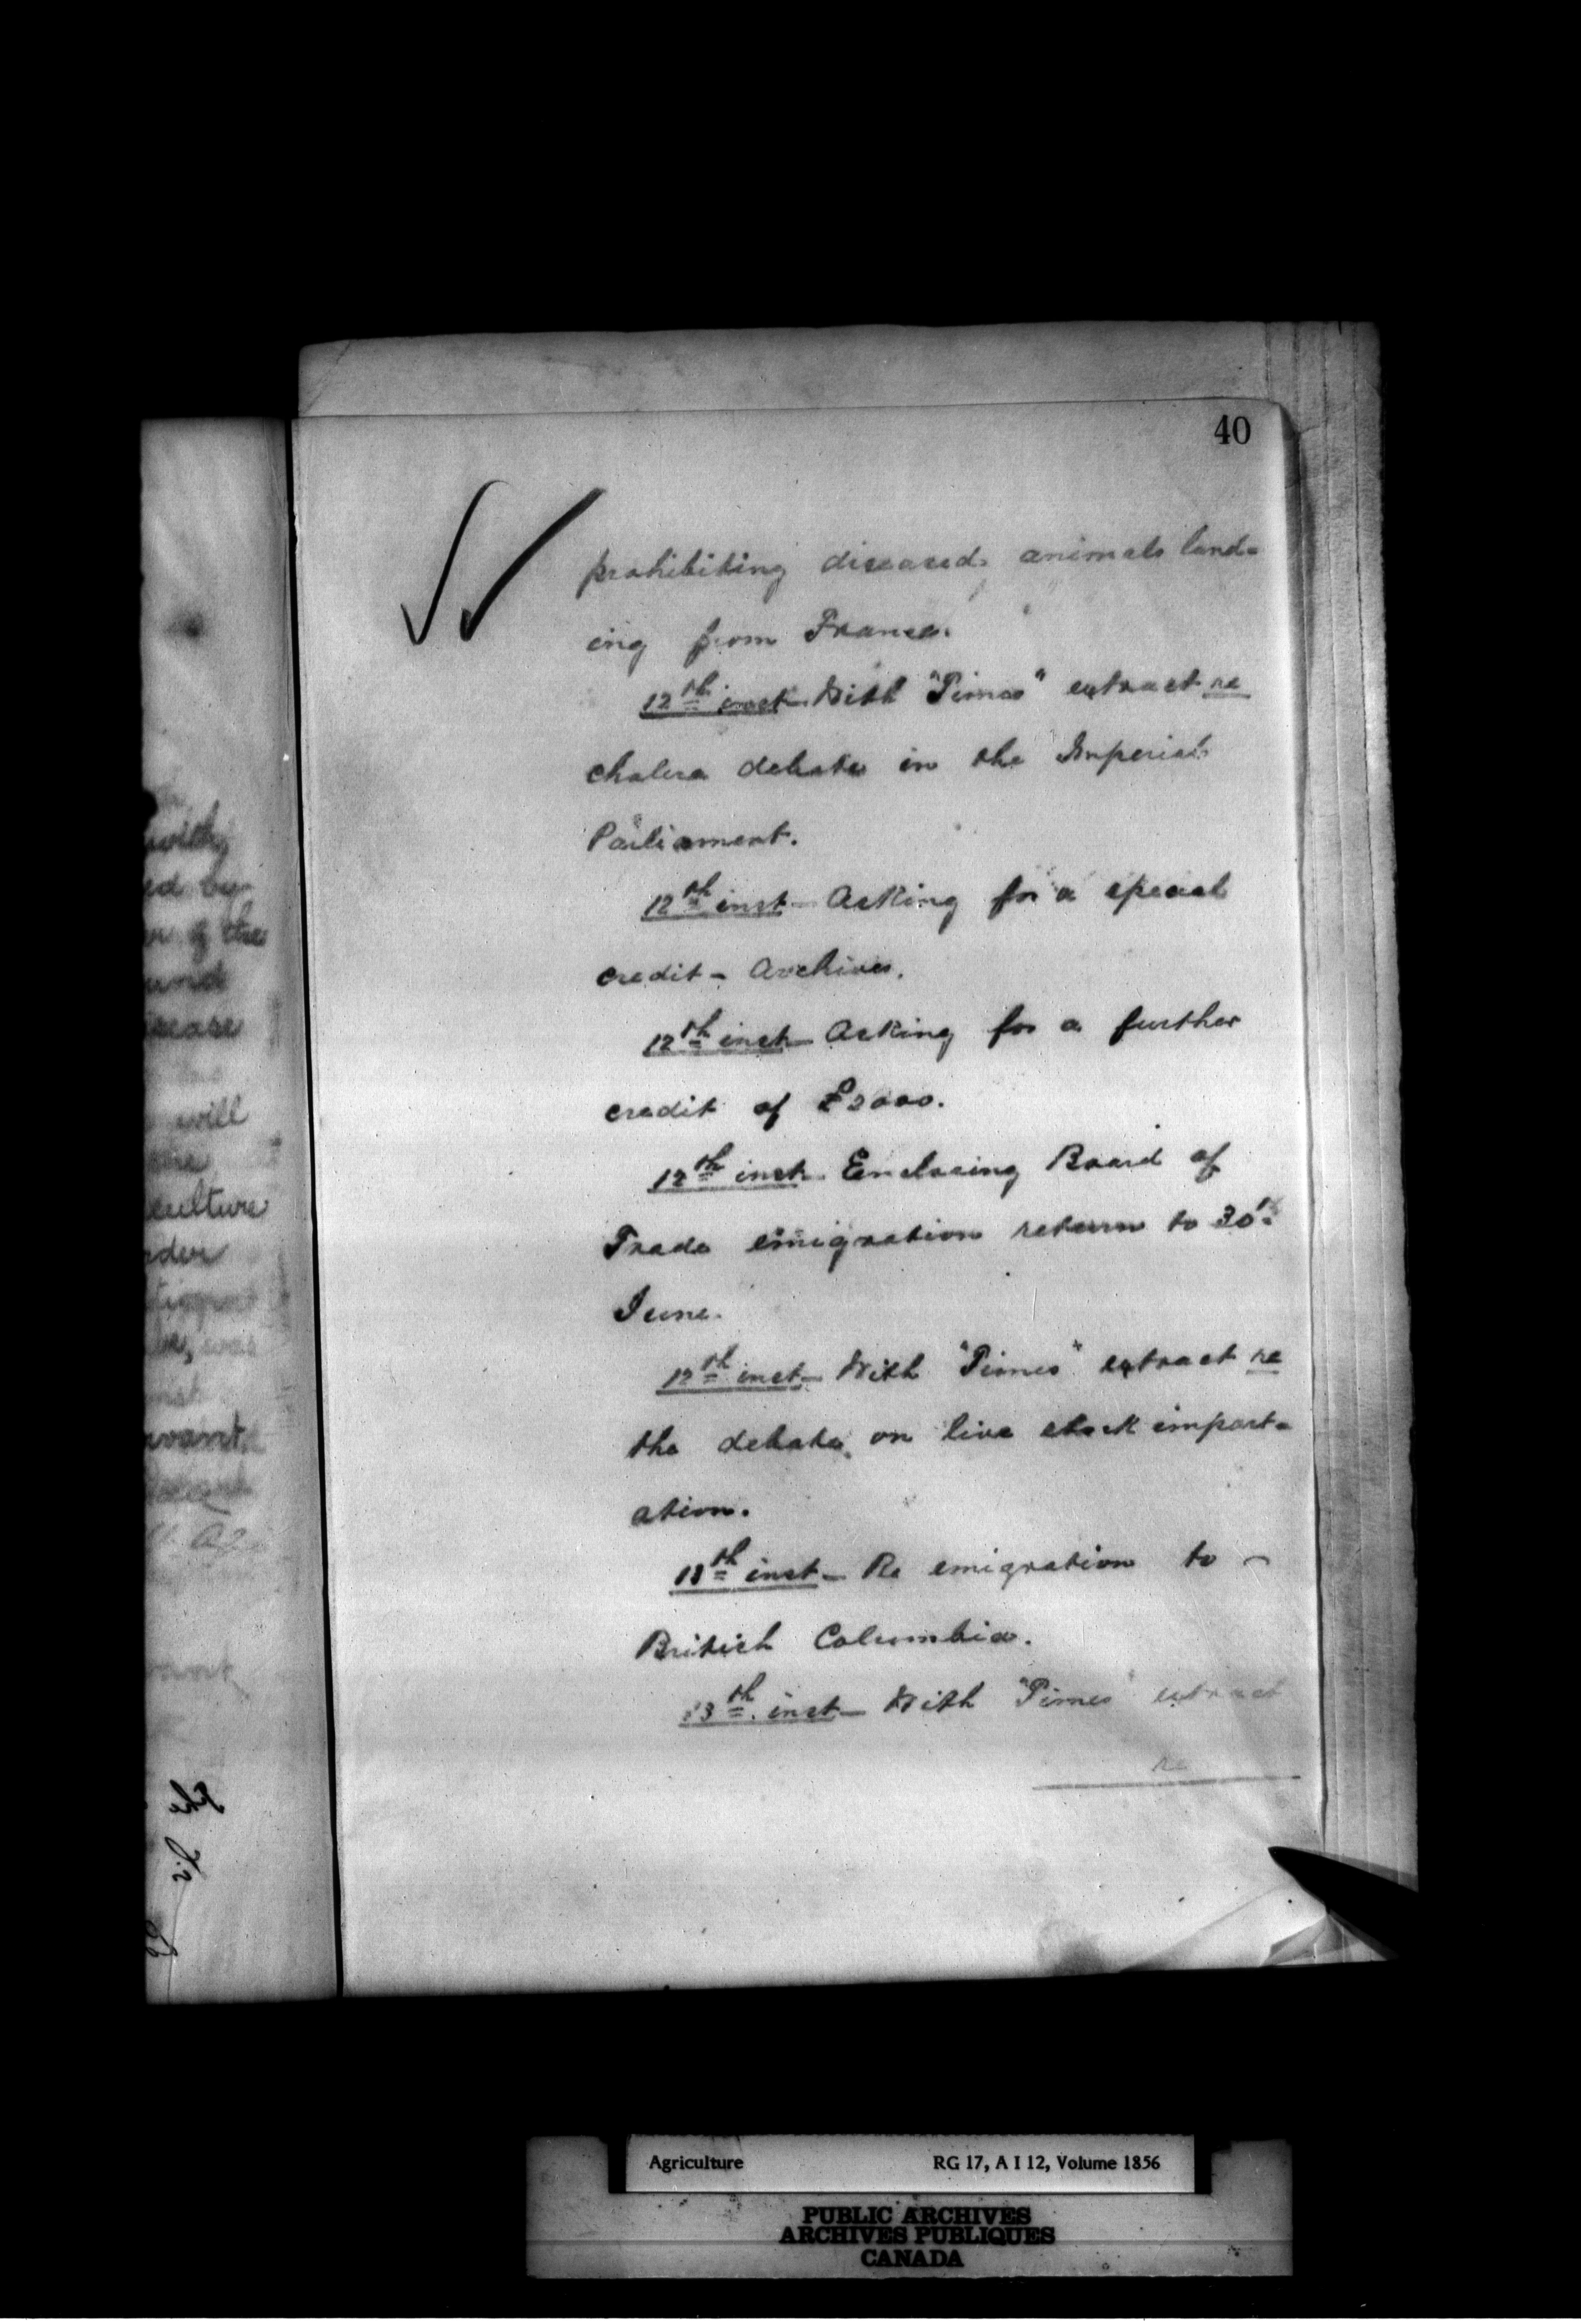 40
prohibiting diseased animals land=
ing from France.
12th inst - With "Times" extract re
cholera debate in the Imperial
Parliament.
12th inst - Asking for a special
credit - Archives.
12th inst - Asking for a further
credit of £2000.
12th inst - Enclosing Board of
Trade emigration return to 30th
June.
12th inst - With "Times" extract re
the debate on live stock import=
ation.
13th inst - Re emigration to -
British Columbia.
13th inst - With "Times" extract
re
with
ed by
of the
and
isease
will
culture
was
Agriculture RG 17, A I 12, Volume 1856
PUBLIC ARCHIVES
ARCHIVES PUBLIQUES
CANADA